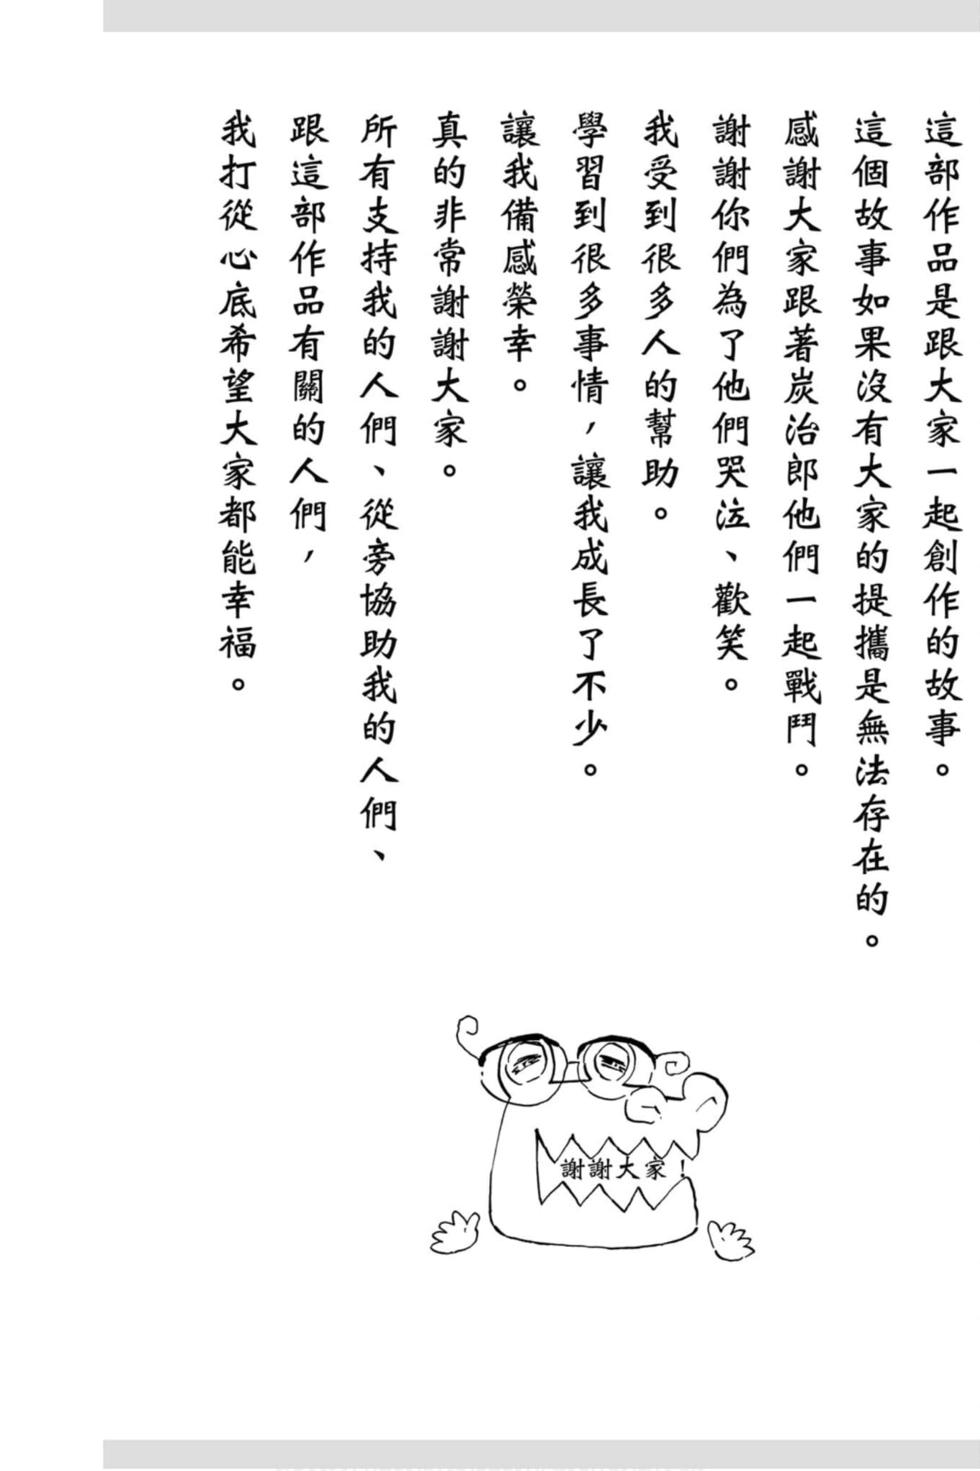 這部作品是跟大家一起創作的故事。
這個故事如果沒有大家的提攜是無法存在的。
感謝大家跟著炭治郎他們一起戰鬥。
謝謝你們為了他們哭泣、歡笑。
我受到很多人的幫助。
學習到很多事情，讓我成長了不少。
讓我備感榮幸。
真的非常謝謝大家。
所有支持我的人們、從旁協助我的人們、
跟這部作品有關的人們，
我打從心底希望大家都能幸福。
謝謝大家！